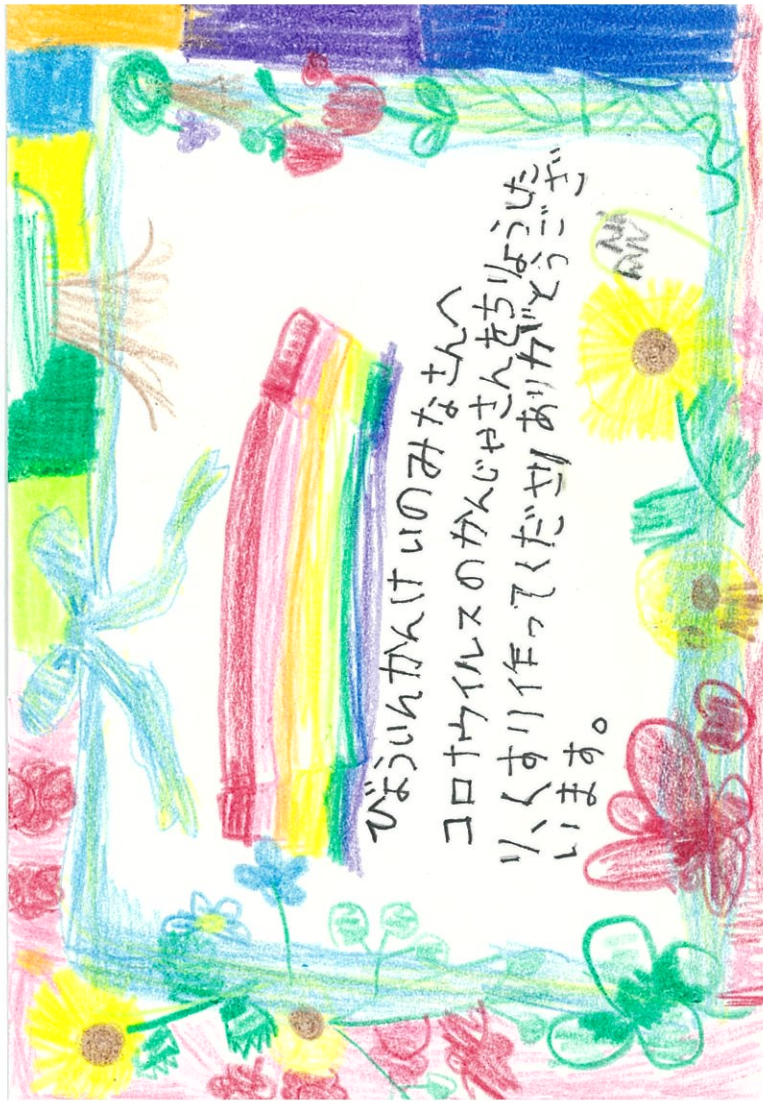 びょういんかんけいのみなさんへ
コロナウイルスのかんじゃさんをちりょうした
り、くすり作ってくださりありがとうござ
います。